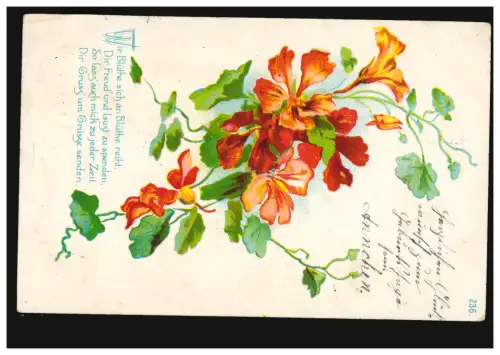 Wie Blüthe sich an Blüthe reiht,
Dir Freud und Lust zu spenden,
So lass auch mich zu jeder Zeit
Dir Gruss um Grüsse senden.
Herzlichen Glück-
wunsch zum
Geburtstage
von
Annchen.
236